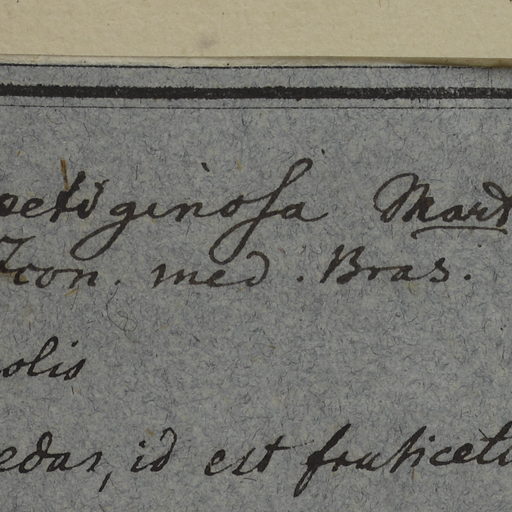 petiginosa Mart
Icon. med. Bras.
olis
edas, id est fruticetu